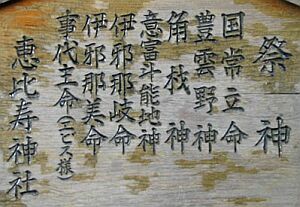 祭神
国常立命
豊雲野神
角杙神
意富斗能地神
伊邪那岐命
伊邪那美命
事代主命(エビス様)
恵比寿神社